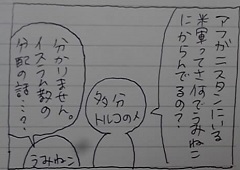 アフガニスタンにいる
米軍ってさ何でうみねこ
にからんでるの?
多分
トルコの人
分かりません。
イスラム教の
分配の話…?
うみねこ